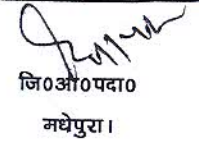 जि0आ0पदा0
मधेपुरा।